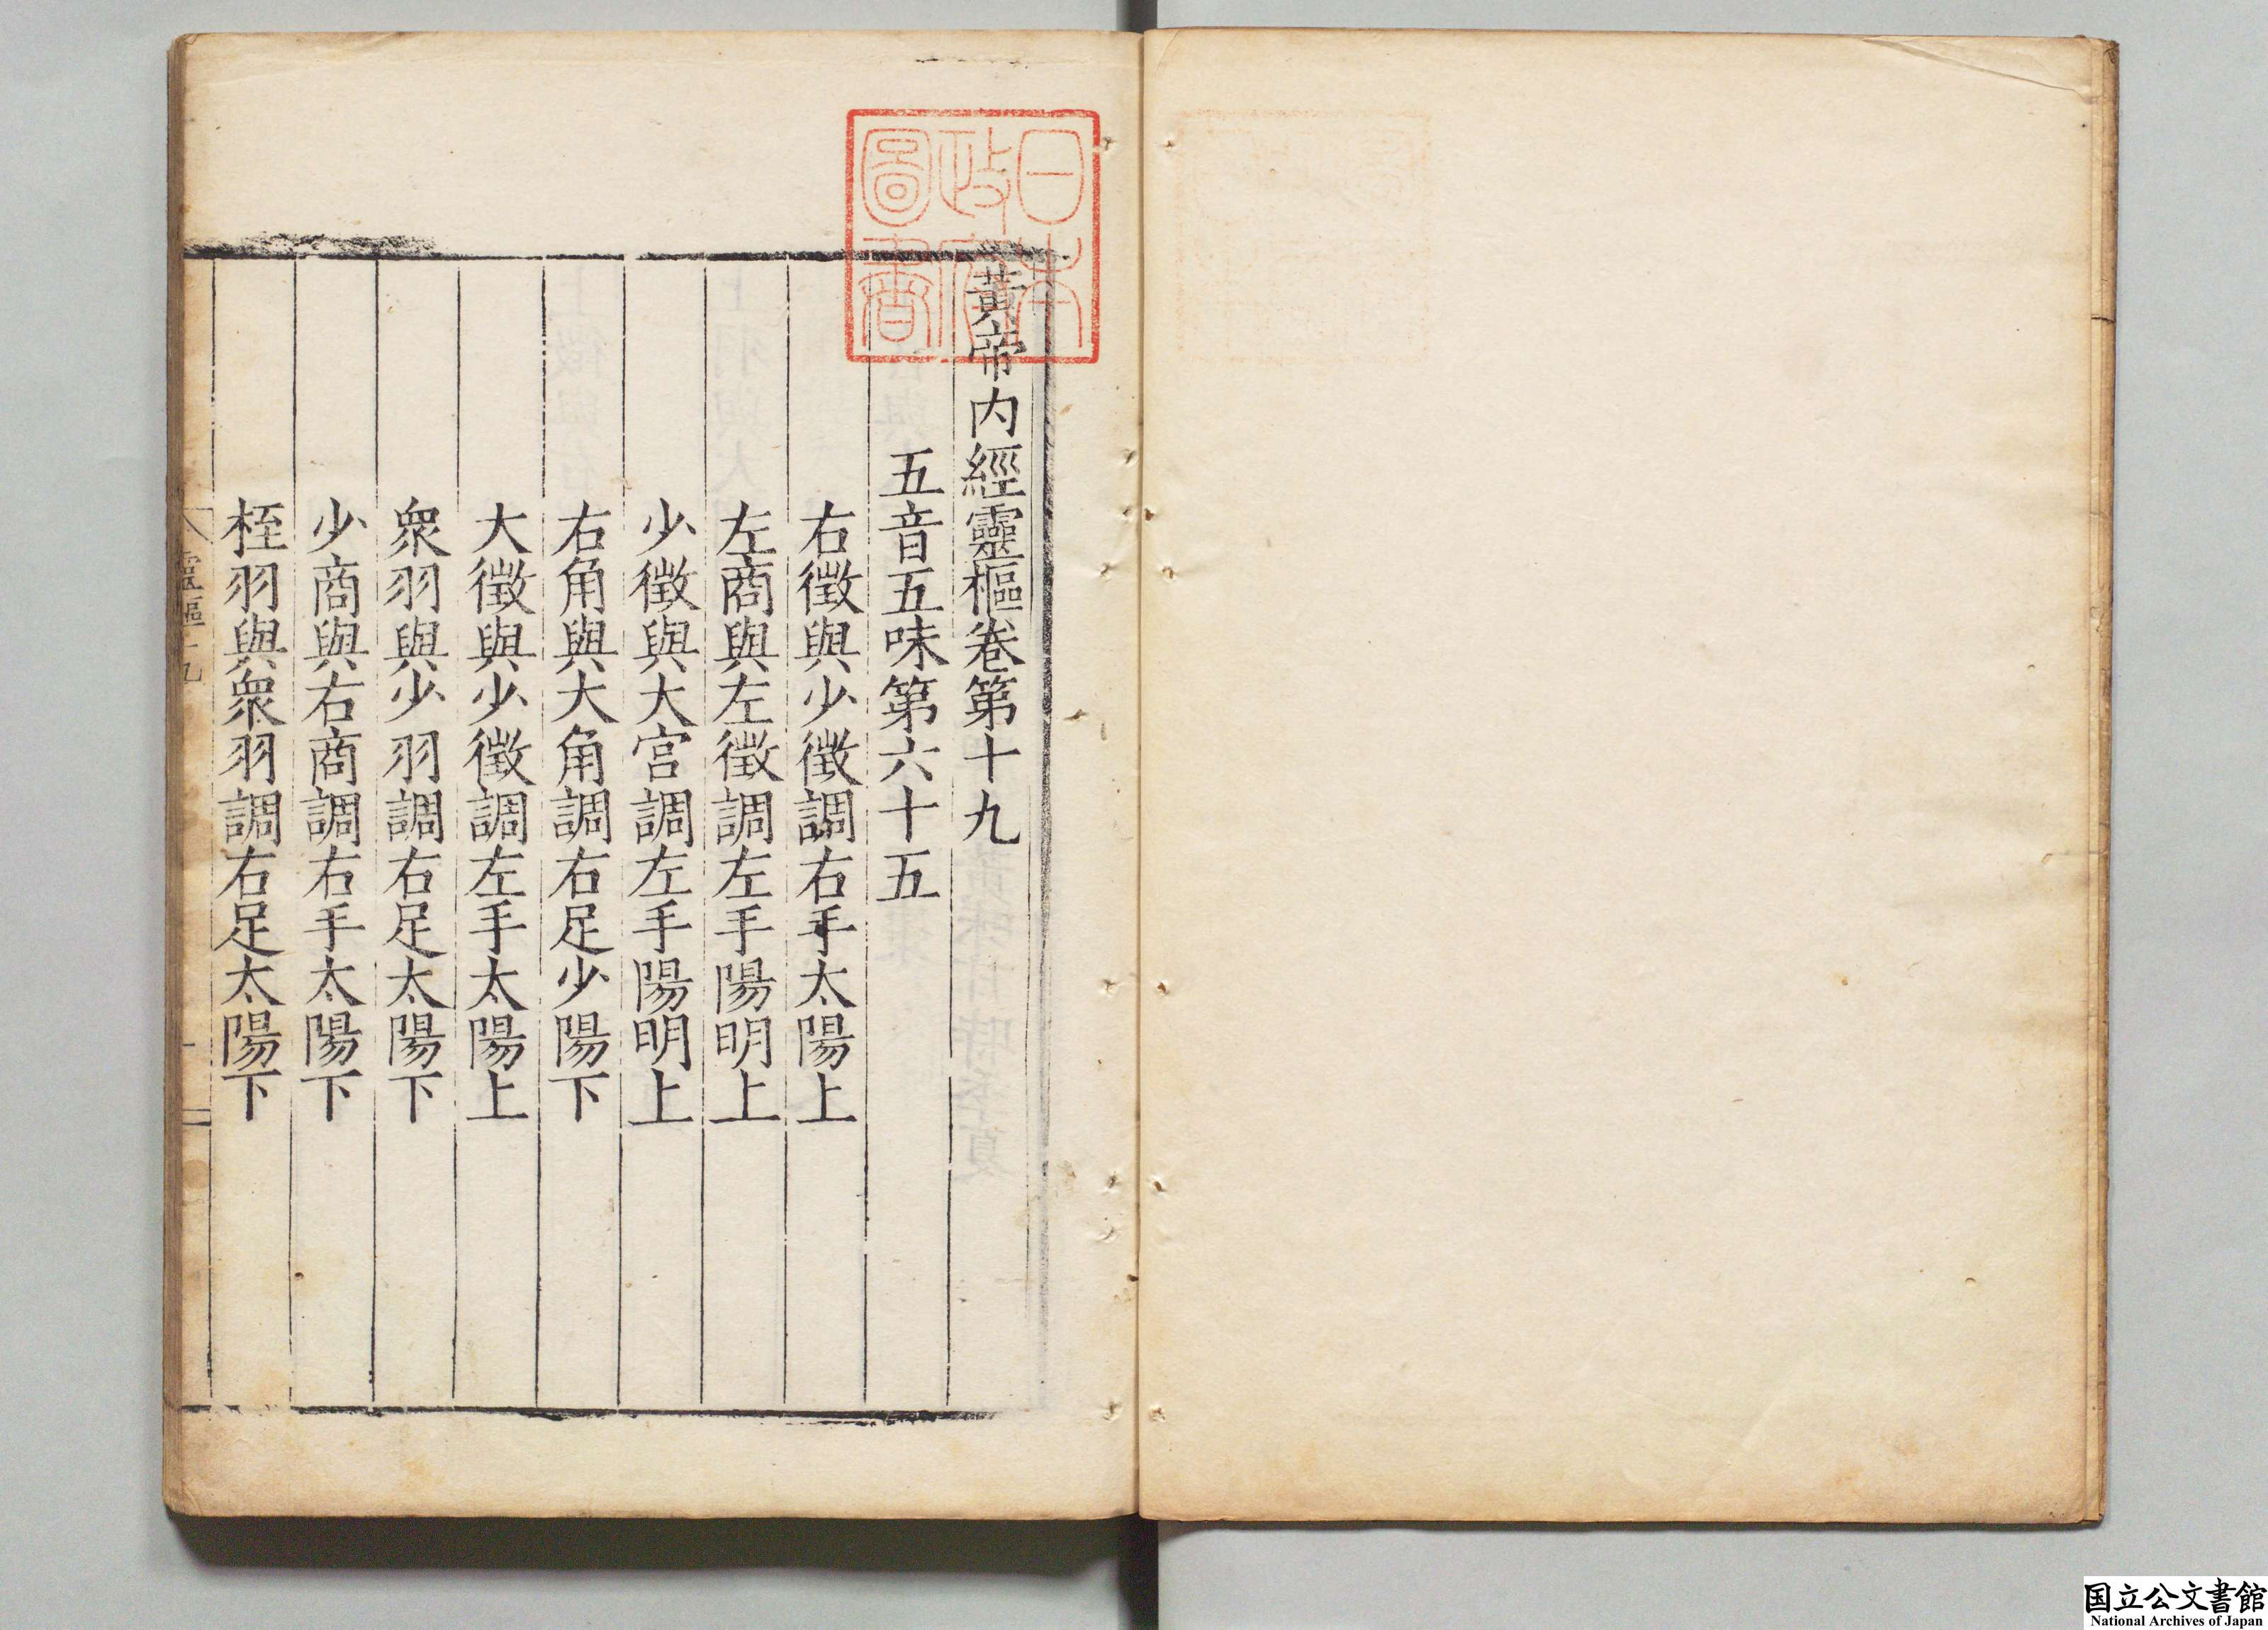 日本
政府
圖書
黃帝内經靈樞卷第十九
五音五味第六十五
右徵與少徵調右手太陽上
左商與左徵調左手陽明上
少徵與大宮調左手陽明上
右角與大角調右足少陽下
大徵與少徵調左手太陽上
衆羽與少羽調右足太陽下
少商與右商調右手太陽下
桎羽與衆羽調右足太陽下
靈樞十九
一
国立公文書館
National Archives of Japan